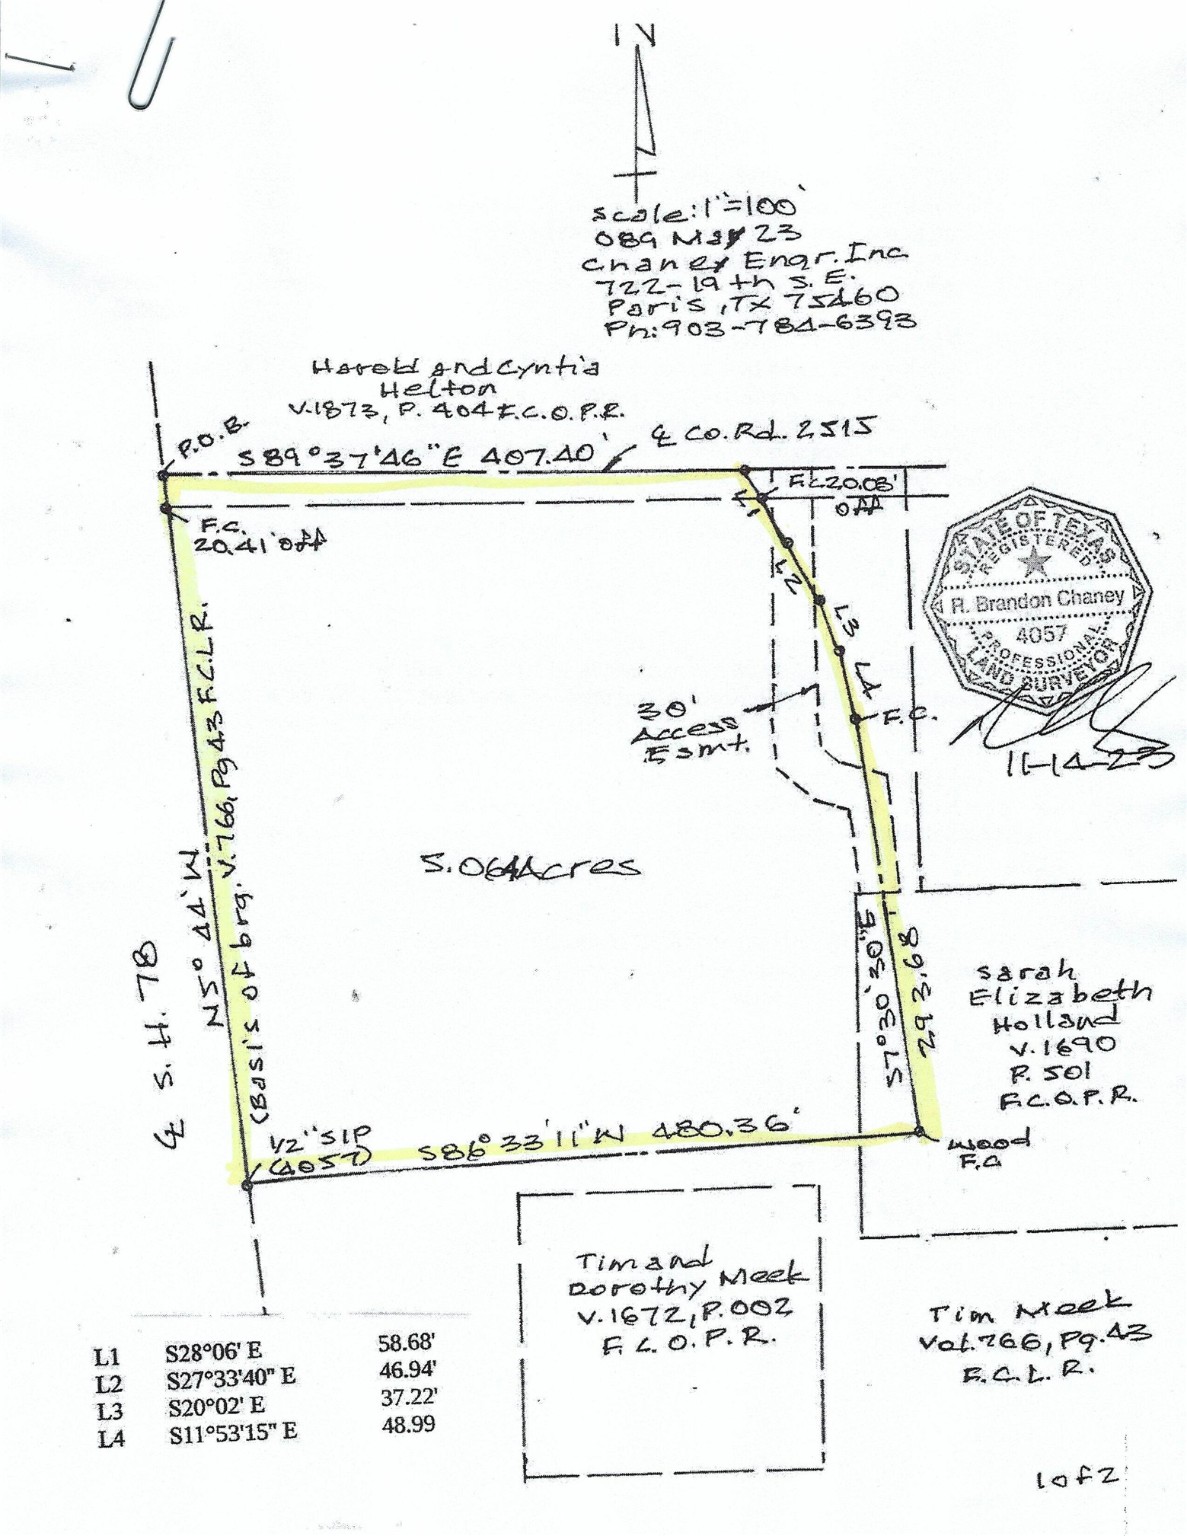 N
Scale: 1"=100'
089 May 23
Chaney Engr. Inc
722-19th S.E.
Paris, TX 75460
Ph: 903-784-6393
Harold and Cyntia
Helton
V.1873, P. 404 F.C.O.P.R.
P.O.B.
S89°37'46"E 407.40'
℄ Co. Rd. 2515
F.C. 20.03'
off
F.C.
20.41' off
L1
L2
L3
L4
F.C.
30'
Access
Esmt.
STATE OF TEXAS
REGISTERED
R. Brandon Chaney
4057
PROFESSIONAL
LAND SURVEYOR
11-14-23
5.064 Acres
N5°44'W
(Basis of brg. V.766, Pg 43 F.C.L.R.
℄ S.H. 78
S7°30'30"E
293.68'
Sarah
Elizabeth
Holland
V.1690
P. 501
F.C.O.P.R.
1/2" SIP
(4057)
S86°33'11"W 480.36'
Wood
F.C.
Tim and
Dorothy Meek
V.1672, P.002
F.C.O.P.R.
Tim Meek
Vol. 766, Pg. 43
F.C.L.R.
L1 S28°06' E 58.68'
L2 S27°33'40" E 46.94'
L3 S20°02' E 37.22'
L4 S11°53'15" E 48.99
1 of 2